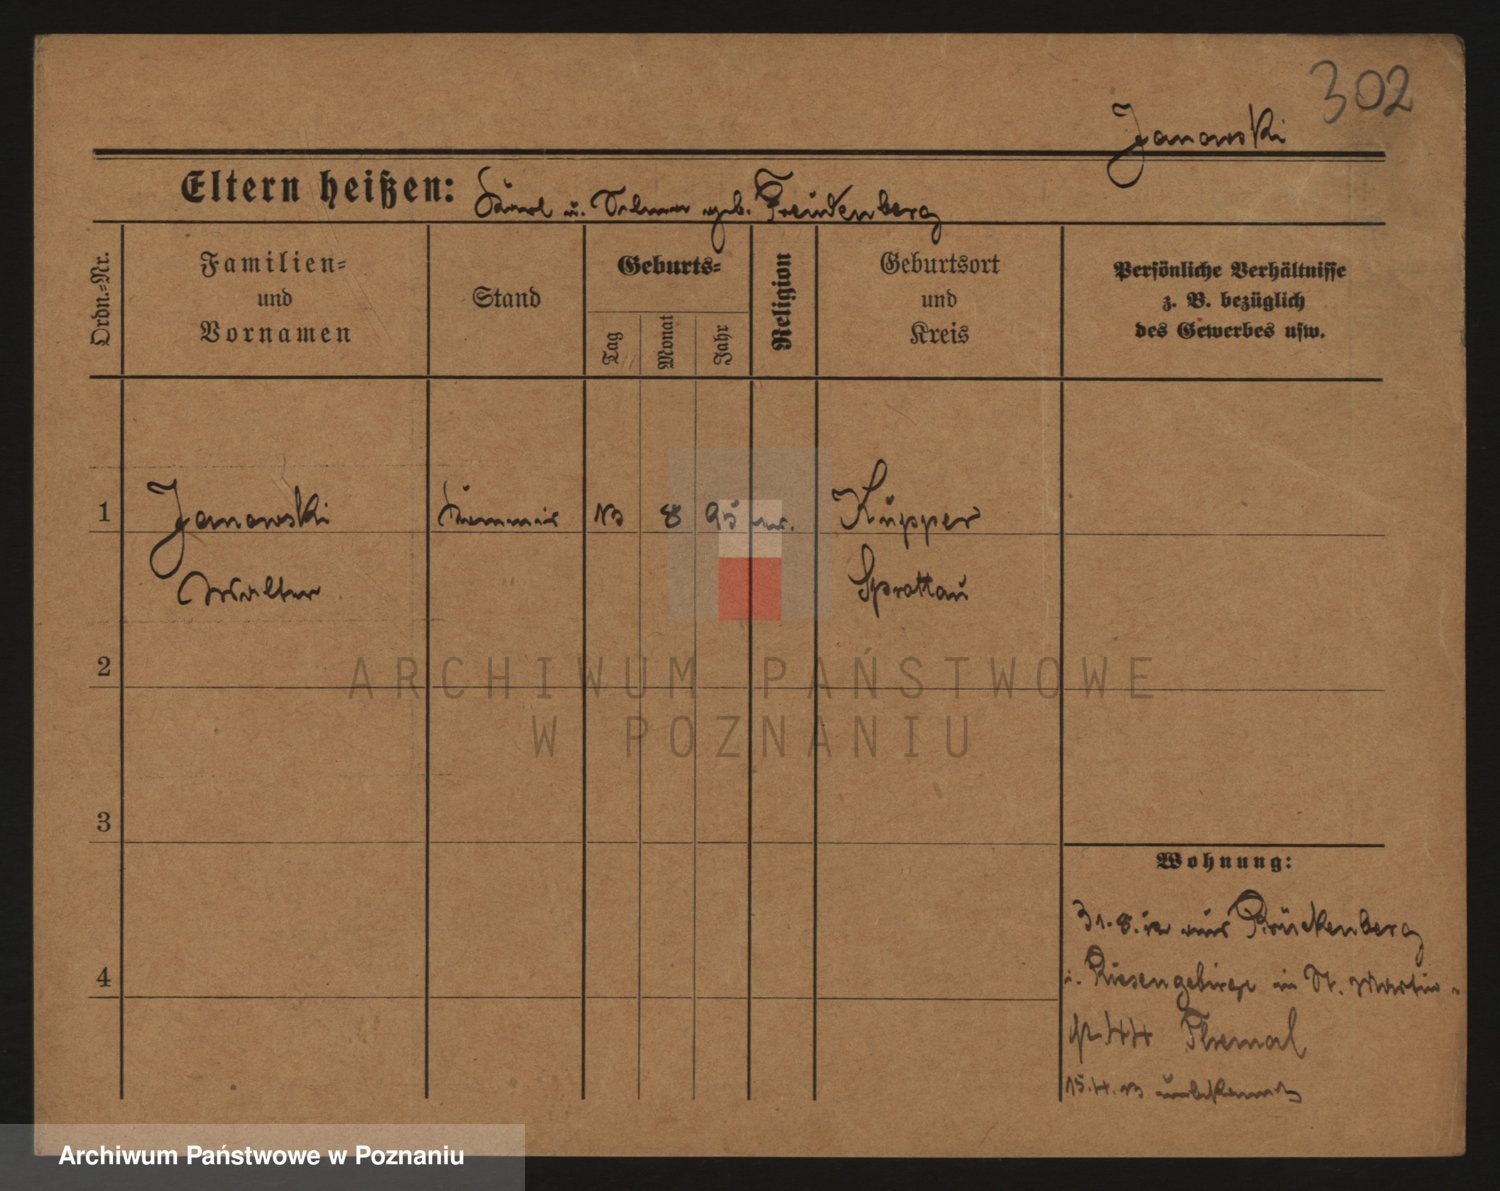 302
Janowski
Eltern heißen: Karl u. Selma geb. Freudenberg
Ordn.-Nr.
Familien-
und
Vornamen
Stand
Geburts-
Tag
Monat
Jahr
Religion
Geburtsort
und
Kreis
Persönliche Verhältnisse
z. B. bezüglich
des Gewerbes usw.
1
Janowski
13 8 95 ev.
Küpper
Walter
Sprottau
2
ARCHIWUM PAŃSTWOWE
W POZNANIU
3
Wohnung:
31.8.12 aus Brückenberg
i. Riesengebirge in St. Martin-
44 Themal
4
15.4.13 unbekannt
Archiwum Państwowe w Poznaniu